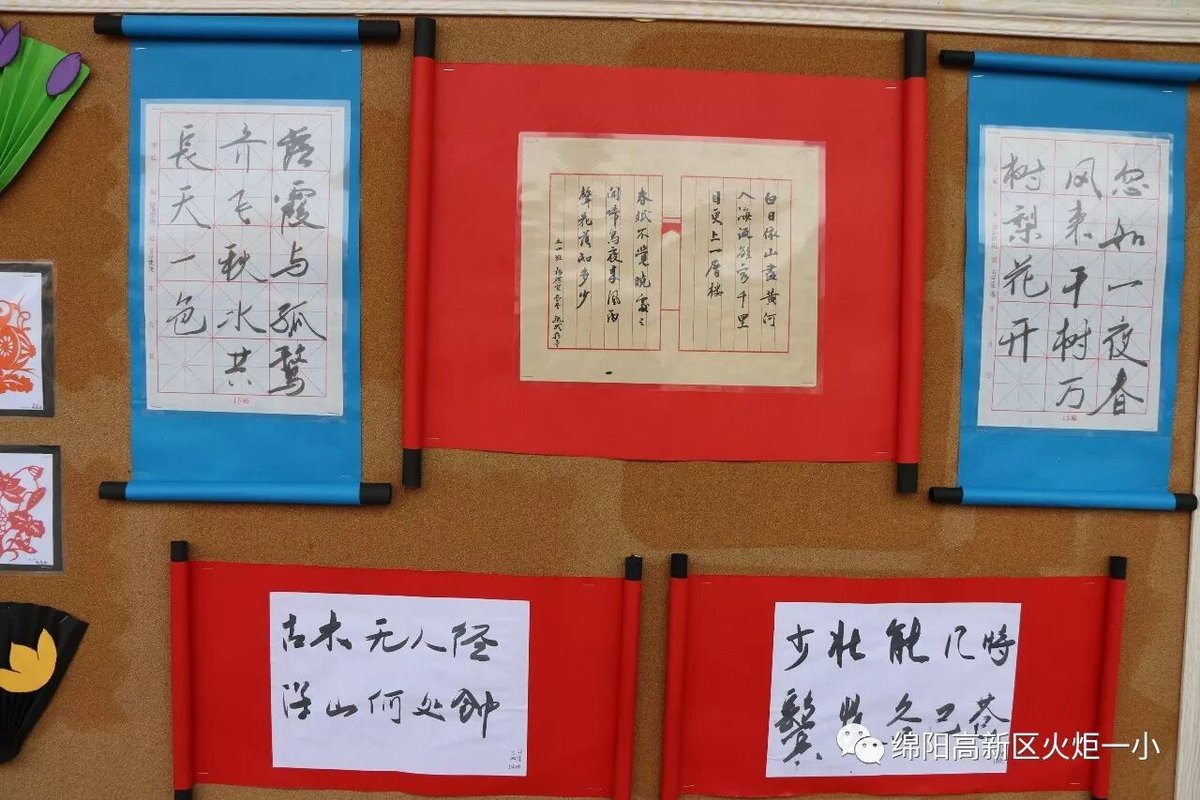 落霞与孤鹜
齐飞秋水共
長天一色
15格
白日依山盡黄河
入海流欲窮千里
目更上一層楼
春眠不覺曉處々
聞啼鳥夜来風雨
聲花落知多少
忽如一夜春
风来千树万
树梨花开
15格
古木无人径
深山何处钟
少壮能几時
鬓发各已苍
绵阳高新区火炬一小